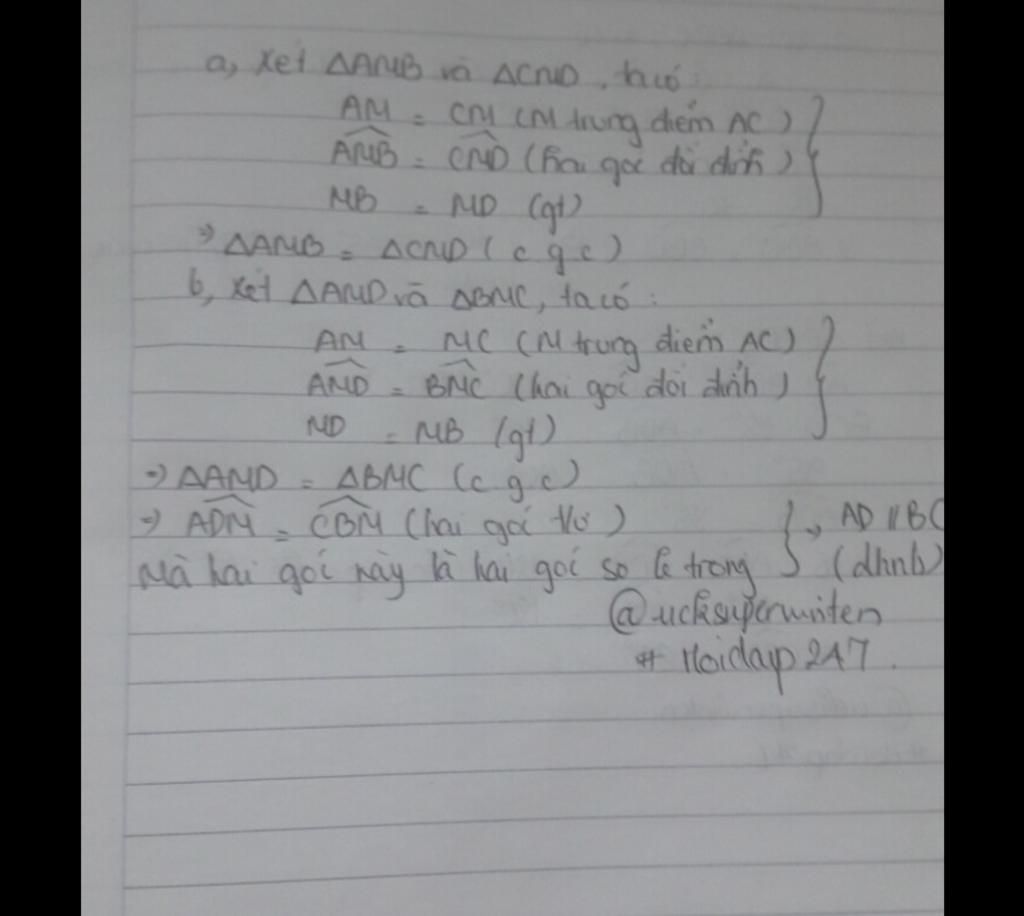 a, Xét ΔAMB và ΔCMD, ta có:
AM = CM (M trung điểm AC)
∠AMB = ∠CMD (hai góc đối đỉnh)
MB = MD (gt)
=> ΔAMB = ΔCMD (c g c)
b, Xét ΔAMD và ΔBMC, ta có:
AM = MC (M trung điểm AC)
∠AMD = ∠BMC (hai góc đối đỉnh)
MD = MB (gt)
=> ΔAMD = ΔBMC (c g c)
=> ∠ADM = ∠CBM (hai góc t/ư) } => AD // BC
Mà hai góc này là hai góc so le trong (dhnb)
# Hoidap 247.